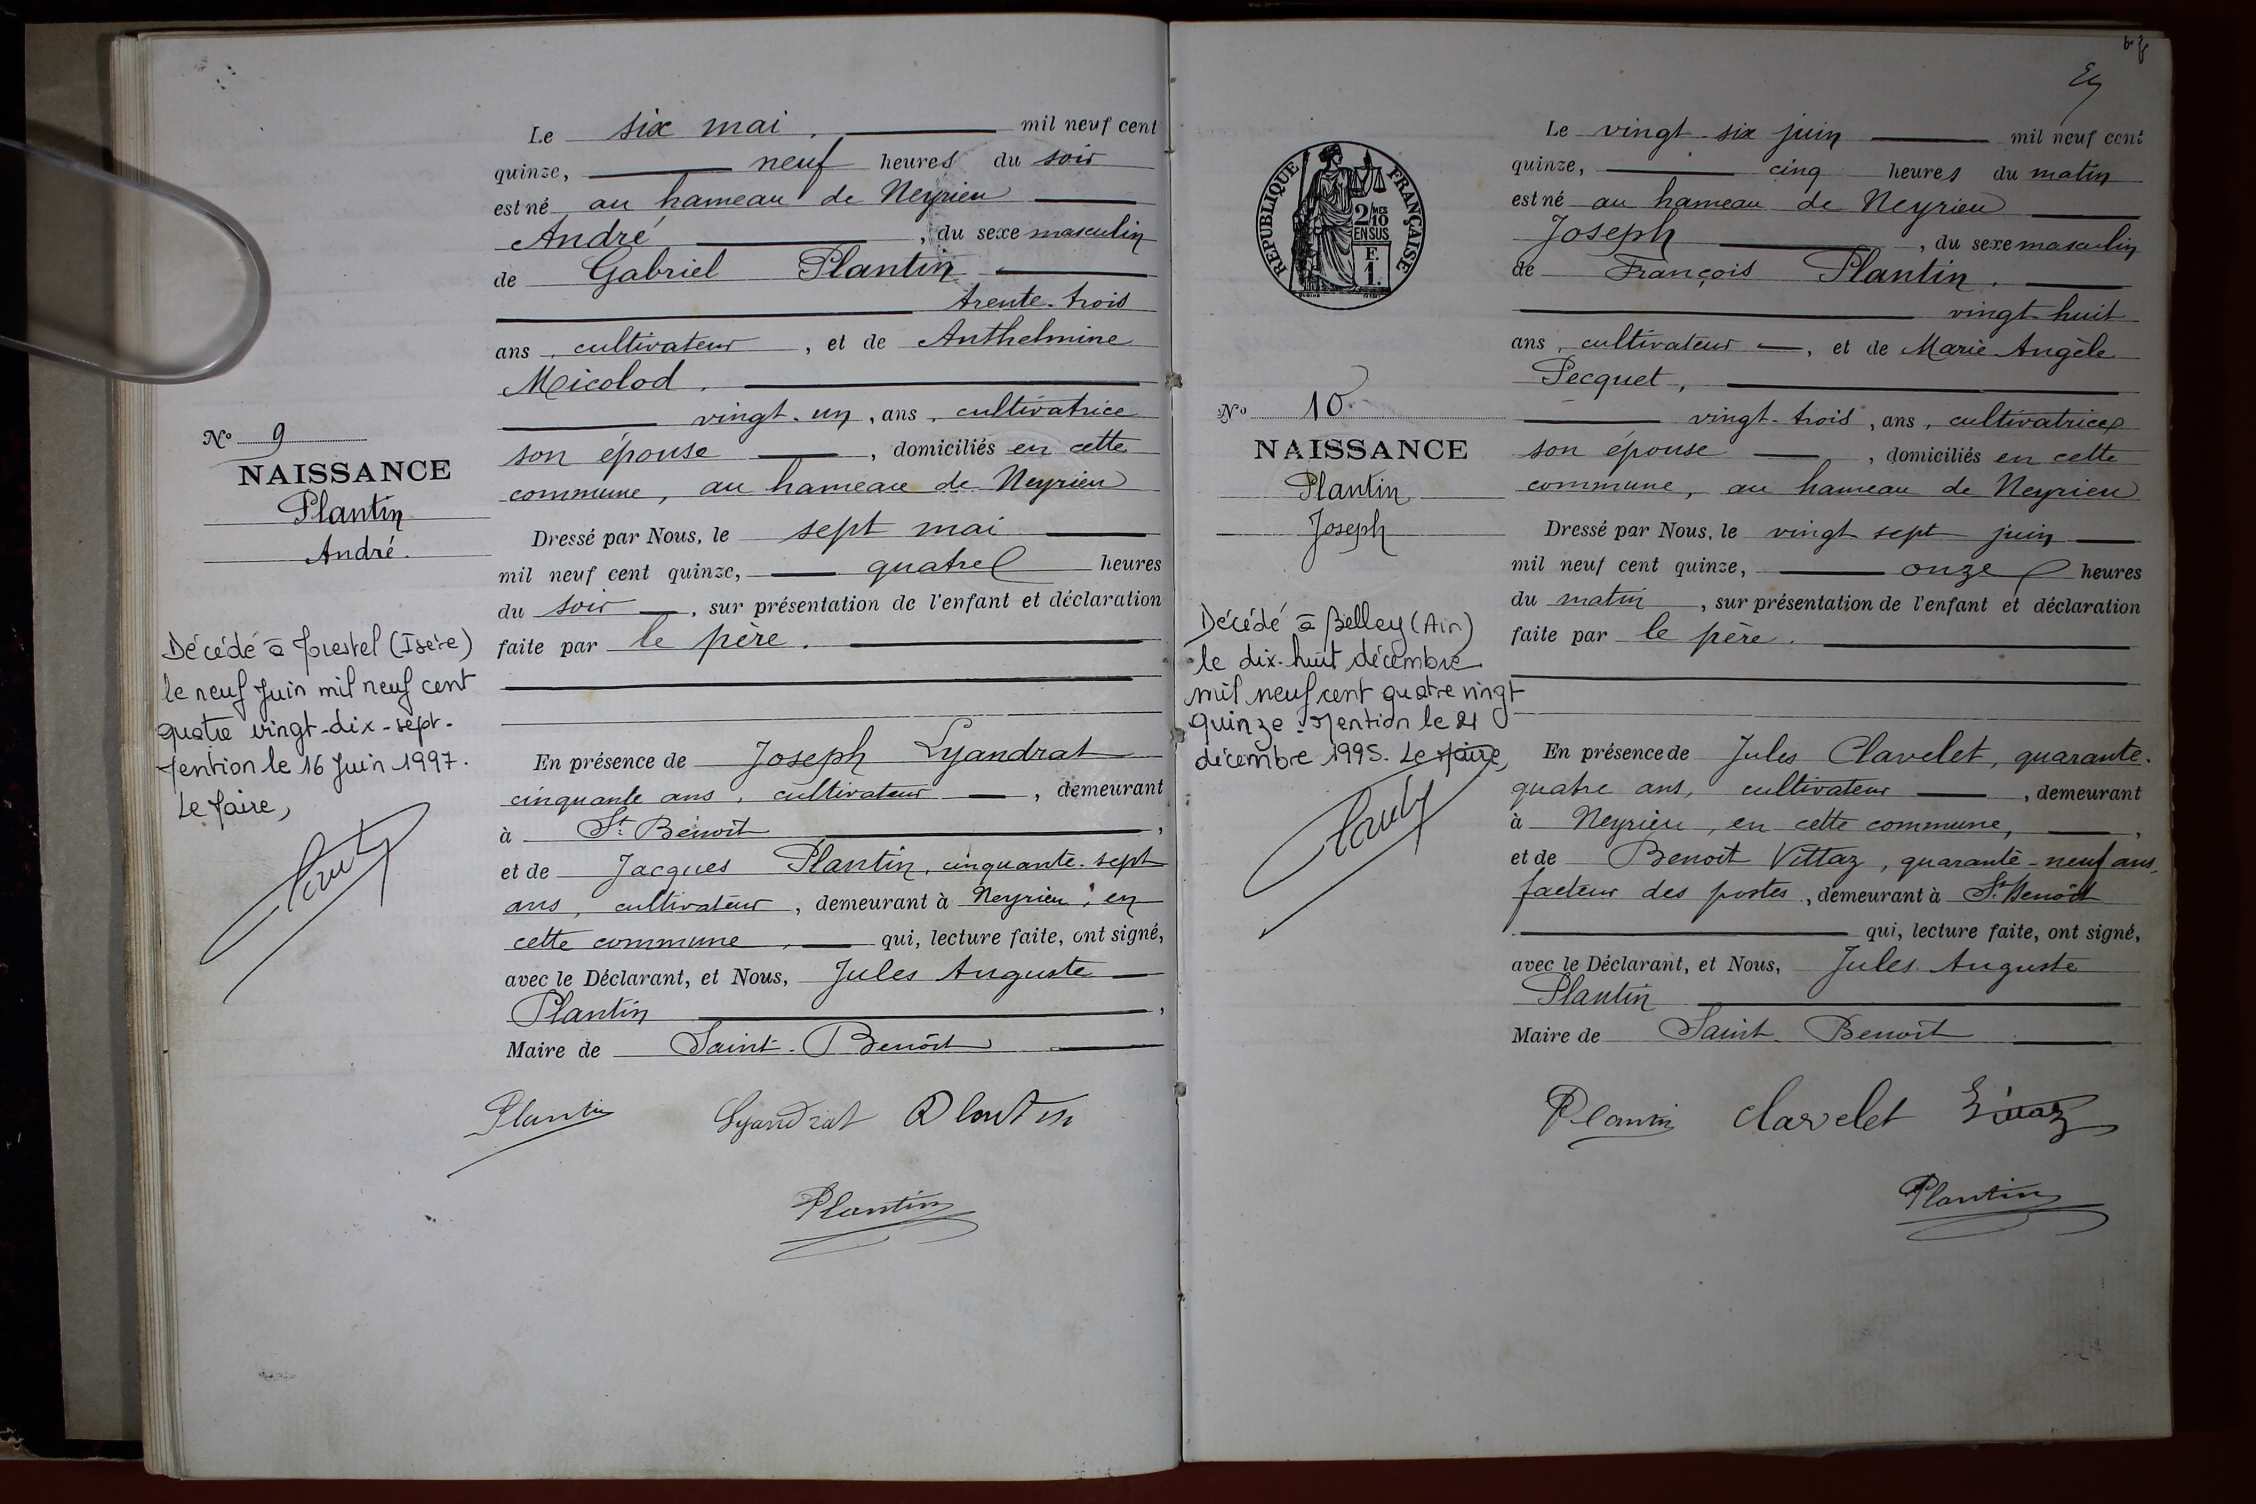 Le six mai, mil neuf cent
quinze, neuf heures du soir
est né au hameau de Neyrieu
André, du sexe masculin
de Gabriel Plantin
trente-trois
ans, cultivateur, et de Anthelmine
Micolod,
vingt-un, ans, cultivatrice
son épouse, domiciliés en cette
commune, au hameau de Neyrieu
Dressé par Nous, le sept mai
mil neuf cent quinze, quatre heures
du soir, sur présentation de l'enfant et déclaration
faite par le père.
En présence de Joseph Lyandrat
cinquante ans, cultivateur, demeurant
à St Benoît,
et de Jacques Plantin, cinquante-sept
ans, cultivateur, demeurant à Neyrieu, en
cette commune, qui, lecture faite, ont signé,
avec le Déclarant, et Nous, Jules Auguste
Plantin,
Maire de Saint-Benoît
Plantin Lyandrat Plantin
Plantin
No 9
NAISSANCE
Plantin
André.
Décédé à (Isère)
le neuf Juin mil neuf cent
quatre vingt-dix-sept.
Mention le 16 Juin 1997.
Le Maire,
RÉPUBLIQUE FRANÇAISE
2/10MES
EN SUS
F.
1.
No 10
NAISSANCE
Plantin
Joseph
Décédé à Belley (Ain)
le dix-huit décembre
mil neuf cent quatre vingt
quinze. Mention le 21
décembre 1995. Le Maire,
Le vingt-six juin mil neuf cent
quinze, cinq heures du matin
est né au hameau de Neyrieu
Joseph, du sexe masculin
de François Plantin,
vingt-huit
ans, cultivateur, et de Marie Angèle
Pecquet,
vingt-trois, ans, cultivatrice
son épouse, domiciliés en cette
commune, au hameau de Neyrieu
Dressé par Nous, le vingt sept juin
mil neuf cent quinze, onze heures
du matin, sur présentation de l'enfant et déclaration
faite par le père.
En présence de Jules Clavelet, quarante-
quatre ans, cultivateur, demeurant
à Neyrieu, en cette commune,,
et de Benoît Vittaz, quarante-neuf ans,
facteur des postes, demeurant à St Benoît
qui, lecture faite, ont signé,
avec le Déclarant, et Nous, Jules Auguste
Plantin
Maire de Saint-Benoît
Plantin Clavelet
Plantin